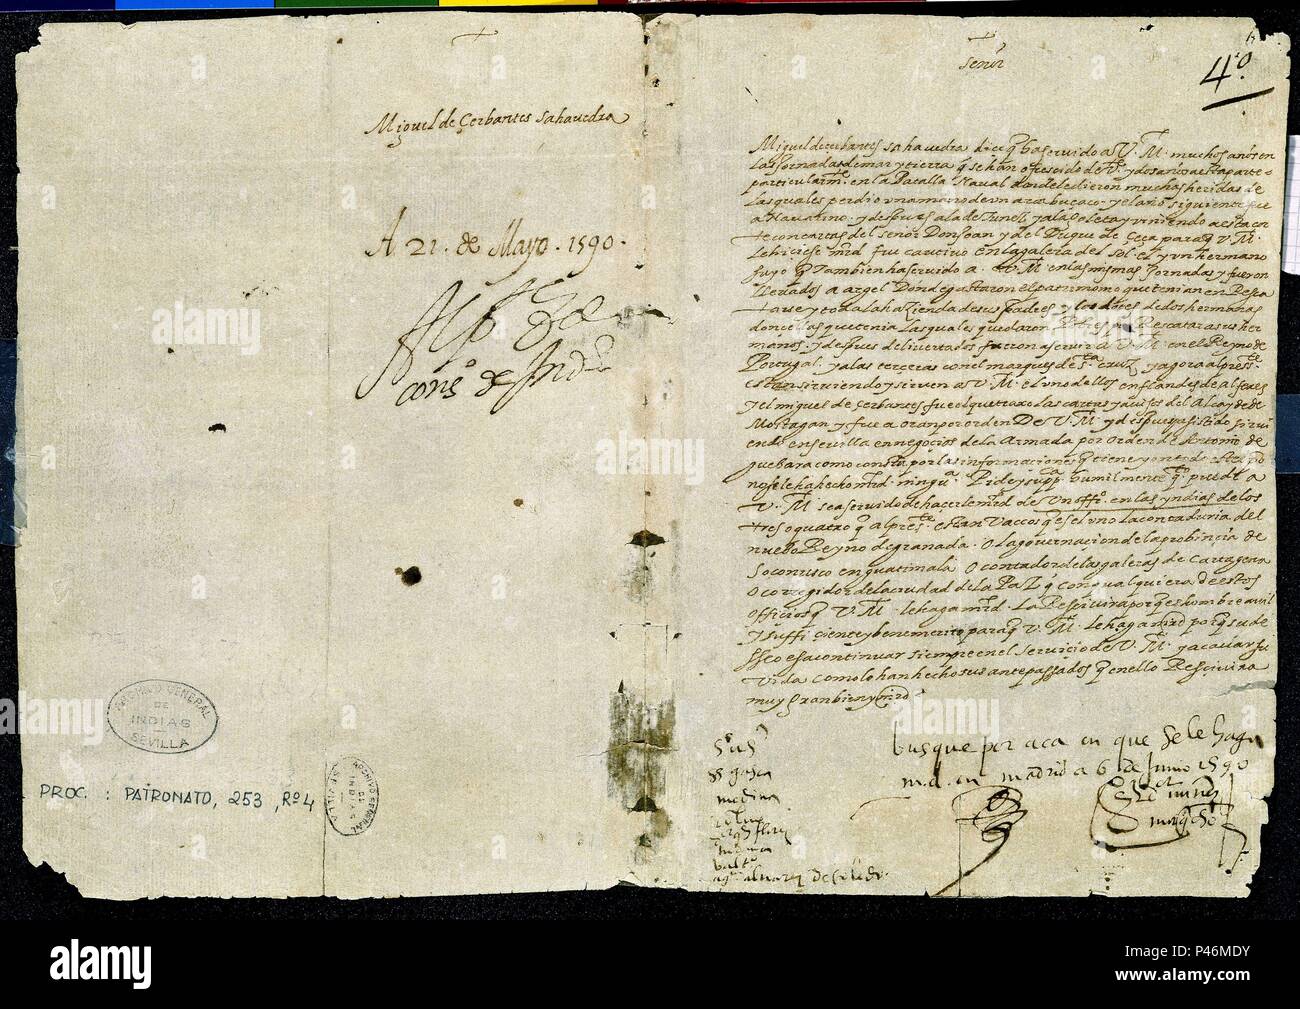 Miguel de Çerbantes Sahauedra
A 21. de Mayo. 1590.
cons° de Inds
ARCHIVO GENERAL
DE
INDIAS
SEVILLA
PROC. : PATRONATO, 253 , Rº 4
ARCHIVO GENERAL
DE
INDIAS
SEVILLA
4º
señor
Miguel de cerbantes sahauedra dice q ha seruido a V. M. muchos años en
las jornadas de mar y tierra q se han ofrescido de
particularmte en la Batalla Naual donde le dieron muchas heridas de
las quales perdio vna mano de vn arcabuçaco y el año siguiente fue
a Nauarino y despues a la de Tunez y a la Goleta y viniendo a esta cor
te con cartas del señor Don Joan y del Duque de Çeça para q V. M.
le hiciese md fue catiuo en la galera del sol el y vn hermano
suyo q Tambien ha seruido a V. M. en las mismas jornadas y fueron
lleuados a argel Donde gastaron el patrimonio que tenian en Resca
tarse y toda la hazienda de sus padres y las dotes de dos hermanas
doncellas que tenia las quales quedaron Pobres por Rescatar a sus her
manos y despues de liuertados fueron a seruir a V. M. en el Reyno de
Portugal y a las terceras con el marques de sta cruz y agora al preste
estan siruiendo y siruen a V. M. el vno dellos en flandes de alferes
y el miguel de Çerbantes fue el que traxo las cartas y auisos del Alcayde de
Mostagan y fue a oran por orden De V. M. y despues asistido siruiendo
en seuilla en negocios de la Armada por orden de Antonio de
guebara como consta por las informaciones q tiene y en todo este tpo
no se le ha hecho md ningua Pide y suppca humilmente
V. M. sea seruido de hacerle md de Vn offo en las yndias de los
tres o quatro q al preste estan Vaccos q es el vno la contaduria del
nuebo Reyno de granada o la gouernaçion de la probincia de
Soconusco en guatimala o contador de las galeras de Cartagena
o corregidor de la ciudad de la Paz q con qualquiera de estos
officios q V. M. le haga md La Resciuira porq es hombre auil
y suffiçiente y benemerito para q V. M. le haga md porq su de
sseo es a continuar siempre en el seruicio de V. M. y acauar su
Vida como lo han hecho sus antepassados q en ello Resciuira
muy Gran bien y md
busque por aca en que se le haga
md. en madrid a 6 de Junio 1590
medina